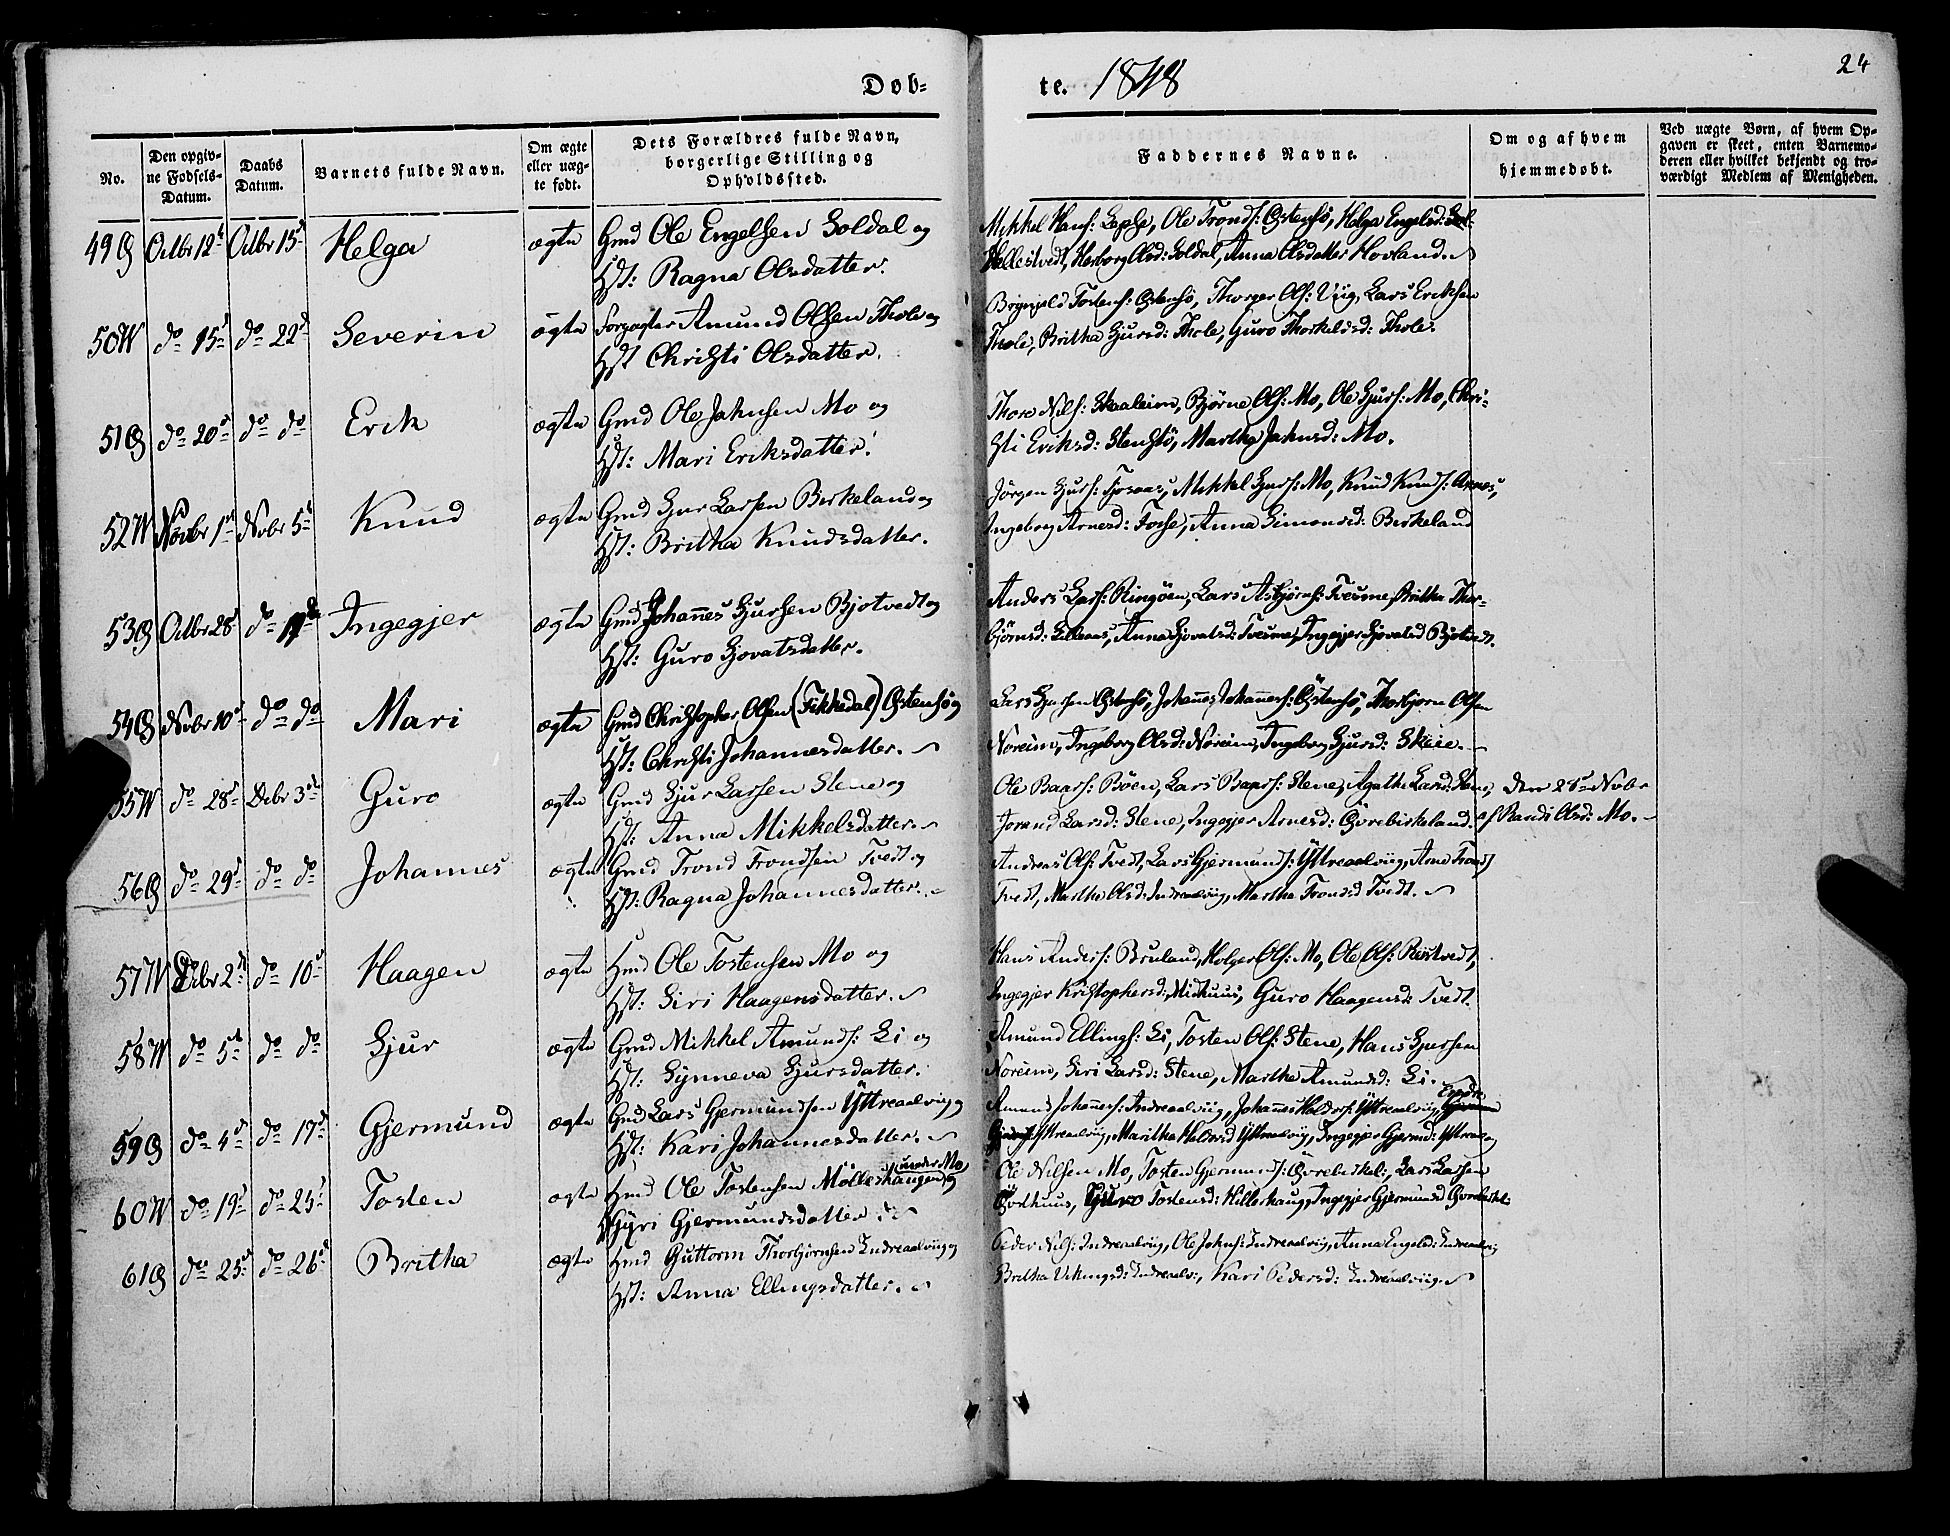 Døb-
te. 1848
24
No.
Den opgiv-
ne Fødsels-
Datum.
Daabs
Datum.
Barnets fulde Navn.
Om ægte
eller uæg-
te født.
Dets Forældres fulde Navn,
borgerlige Stilling og
Opholdssted.
Faddernes Navne.
Om og af hvem
hjemmedøbt.
Ved uægte Børn, af hvem Op-
gaven er skeet, enten Barnemo-
deren eller hvilket bekjendt og tro-
værdigt Medlem af Menigheden.
49 Octbr 12t Octbr 15d Helga ægte Gmd Ole Engelsen Soldal og
Hst: Ragna Olsdatter.
Mikkel Hans: Lepse, Ole Tronds: Østensö, Helga Engelsd:
Hellestvedt, Herborg Olsd: Soldal, Anna Olsdatter Hovland.
50 do 15d do 22d Severin ægte Forpagter Amund Olsen Thole og
Hst Christi Olsdatter.
Brynjeld Tostens: Östensö, Thorger Ols: Viig, Lars Eriksen
Thole, Britha Sjursd: Thole, Guro Thorkelsd: Thole.
51 do 20d do do Erik ægte Gmd Ole Johnsen Mo og
Hst: Mari Eriksdatter.
Thore Nils: Skaaleim, Bjørne Ols: Mo, Ole Sjurs: Mo, Chri-
sti Eriksd: Stenstö, Martha Johnsd: Mo.
52 Novbr 1st Nvbr 5t Knud ægte Gmd Sjur Larsen Birkeland og
Hst: Britha Knudsdatter.
Jörgen Sjurs: Fosaas, Mikkel Sjurs: Mo, Knud Knuds:
Ingeborg Arnesd: Fosse, Anna Simonsd: Birkeland
53 Octbr 28 do Ingegjer ægte Gmd Johannes Sjursen Bjotvedt og
Hst: Guro Sjovatsdatter.
Anders Lars: Ringöen, Lars Asbjörns: Tveisme, Britha Thor-
björnsd: Lilleaas, Anna Sjovatsd: Tveisme, Ingegjer Sjovatsd Bjotvedt.
54 Nvbr 10d do do Mari ægte Gmd Christopher Olsen (Fikkedal) Östensö og
Hst: Christi Johannesdatter.
Lars Sjursen Östensö, Johannes Johanness: Östensö, Thorbjörn Olsen
Noreim, Ingeborg Olsd: Noreim, Ingeborg Sjursd: Skeie.
55 do 28d Debr 3d Guro ægte Gmd Sjur Larsen Stene og
Hst: Anna Mikkelsdatter.
Ole Baars: Böen, Lars Baars: Stene, Agatha Larsd: Stene,
Jorand Larsd: Stene, Ingegjer Arnesd: Övrebirkeland.
Den 28d Nvbr
af Randi Olsd: Mo.
56 do 29d do do Johannes ægte Gmd Trond Trondsen Tvedt og
Hst: Ragna Johannesdatter.
Andreas Ols: Tvedt, Lars Gjermunds: Yttreaalviig, Arne Tronds:
Tvedt, Martha Olsd: Indreaalviig, Martha Trondsd Tvedt.
57 Debr 2d do 10d Haagen ægte Hmd Ole Tostensen Mo og
Hst: Siri Haagensdatter.
Hans Anders: Bruland, Holger Ols: Mo, Ole Ols: Röstvedt,
Ingegjer Kristophersd: Midhuus, Guro Haagensd: Tvedt.
58 do 5t do do Sjur ægte Gmd Mikkel Amunds: Li og
Hst: Synneva Sjursdatter.
Amund Ellings: Li, Tosten Ols: Stene, Hans Sjursen
Noreim, Siri Larsd: Stene, Martha Amundsd: Li.
59 do 4d do 17d Gjermund ægte Gmd Lars Gjermundsen Yttreaalviig og
Hst: Kari Johannesdatter.
Amund Johanness: Indreaalviig, Johannes Haldors: Yttreaalviig,
Yttreaalviig, Maritha Yttreaalviig, Ingegjer Gjermd: Yttreaa
60 do 19d do 25d Tosten ægte Hmd Ole Tostensen Mölleshaugen under Mo og
Gyri Gjermundsdatter
Ole Nilsen Mo, Tosten Gjermunds: Övrebirkel:, Lars Larsen
Guro Tostensd: Hilleshaug, Ingegjer Gjermundsd Övrebirkel:
61 do 25d do 26d Britha ægte Hmd Guttorm Thorbjørnsen Indreaalviig og
Hst: Anna Ellingsdatter.
Peder Nils: Indreaalviig, Ole Johns: Indreaalviig, Anna Engelsd: Indreaalviig
Britha Vikingsd: Indreaalv:, Kari Pedersd: Indreaalviig.